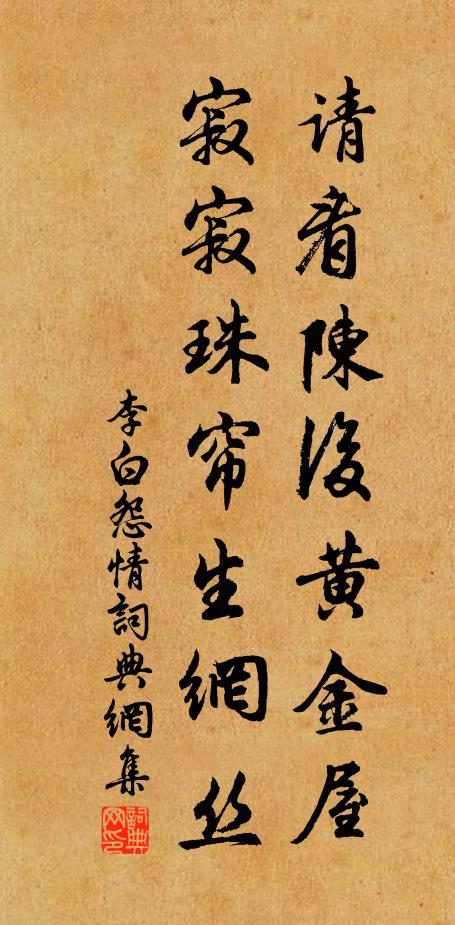 请看陳後黄金屋
寂寂珠帘生網丝
李白怨情詞典網集
詞典
网印